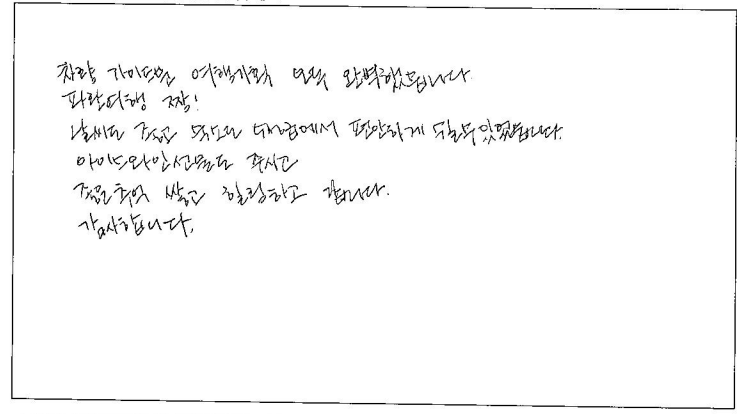 차량 가이드님 여행계획 모두 완벽했습니다.
파란여행 짱!
날씨도 좋고 숙소도 대해서 편안하게 쉴수있었습니다.
아이스와인선물도 주시고
좋은추억 쌓고 힐링하고 갑니다.
감사합니다.